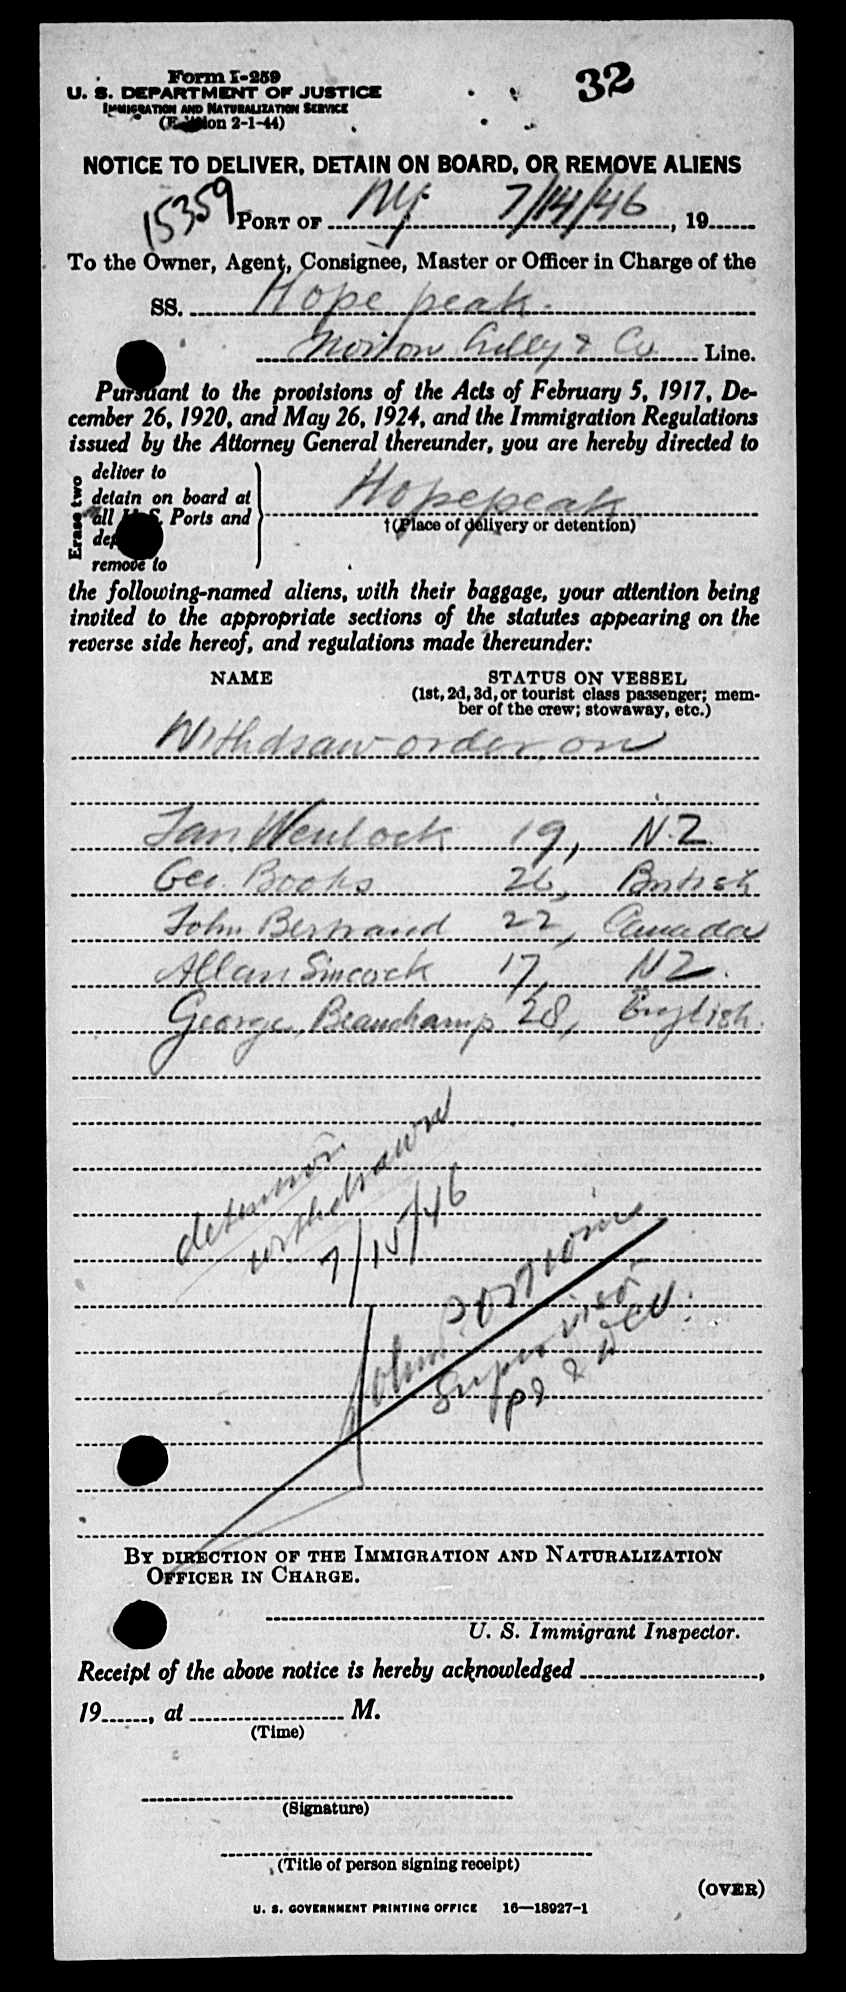 32
Form I-259
U. S. DEPARTMENT OF JUSTICE
IMMIGRATION AND NATURALIZATION SERVICE
(Edition 2-1-44)
NOTICE TO DELIVER, DETAIN ON BOARD, OR REMOVE ALIENS
15359
PORT OF NY. 7/14/46, 19
To the Owner, Agent, Consignee, Master or Officer in Charge of the
SS. Hope peak.
Norton Lilly & Co Line.
Pursuant to the provisions of the Acts of February 5, 1917, De-
cember 26, 1920, and May 26, 1924, and the Immigration Regulations
issued by the Attorney General thereunder, you are hereby directed to
Erase two
deliver to
detain on board at
all U.S. Ports and
remove to
Hopepeak
†(Place of delivery or detention)
the following-named aliens, with their baggage, your attention being
invited to the appropriate sections of the statutes appearing on the
reverse side hereof, and regulations made thereunder:
NAME STATUS ON VESSEL
(1st, 2d, 3d, or tourist class passenger; mem-
ber of the crew; stowaway, etc.)
Withdraw order on
Ian Wenlock 19, N.Z.
Geo. Books 26, British
John Bertrand 22, Canada
Allan Sincock 17, NZ.
George Beauchamp 28, English.
detention
withdrawn
7/15/46
John
Supervisor
BY DIRECTION OF THE IMMIGRATION AND NATURALIZATION
OFFICER IN CHARGE.
U. S. Immigrant Inspector.
Receipt of the above notice is hereby acknowledged ,
19 , at M.
(Time)
(Signature)
(Title of person signing receipt)
(OVER)
U. S. GOVERNMENT PRINTING OFFICE 16—18927-1